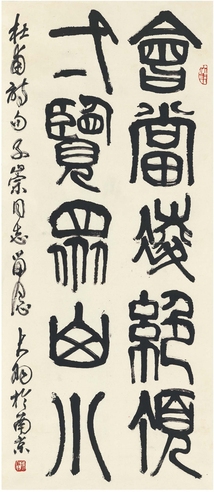 會當凌絕頂
弌覽眾山小
杜甫詩句子崇同志留念大羽於南京